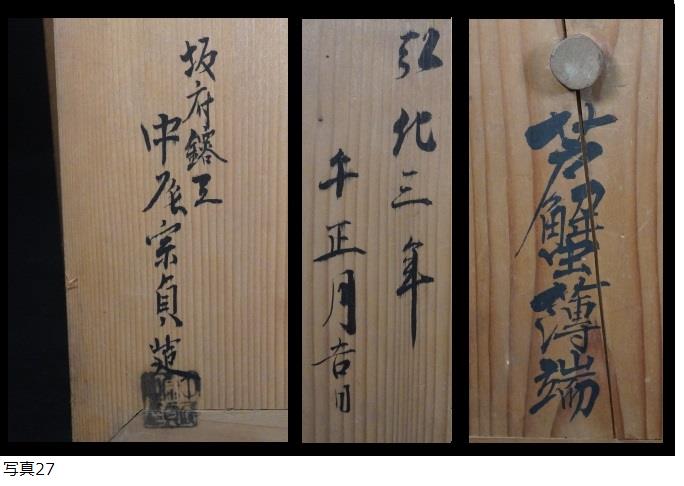 坂府鎔工
中尾宗貞造
弘化三年
午正月吉日
芦蟹薄端
写真27